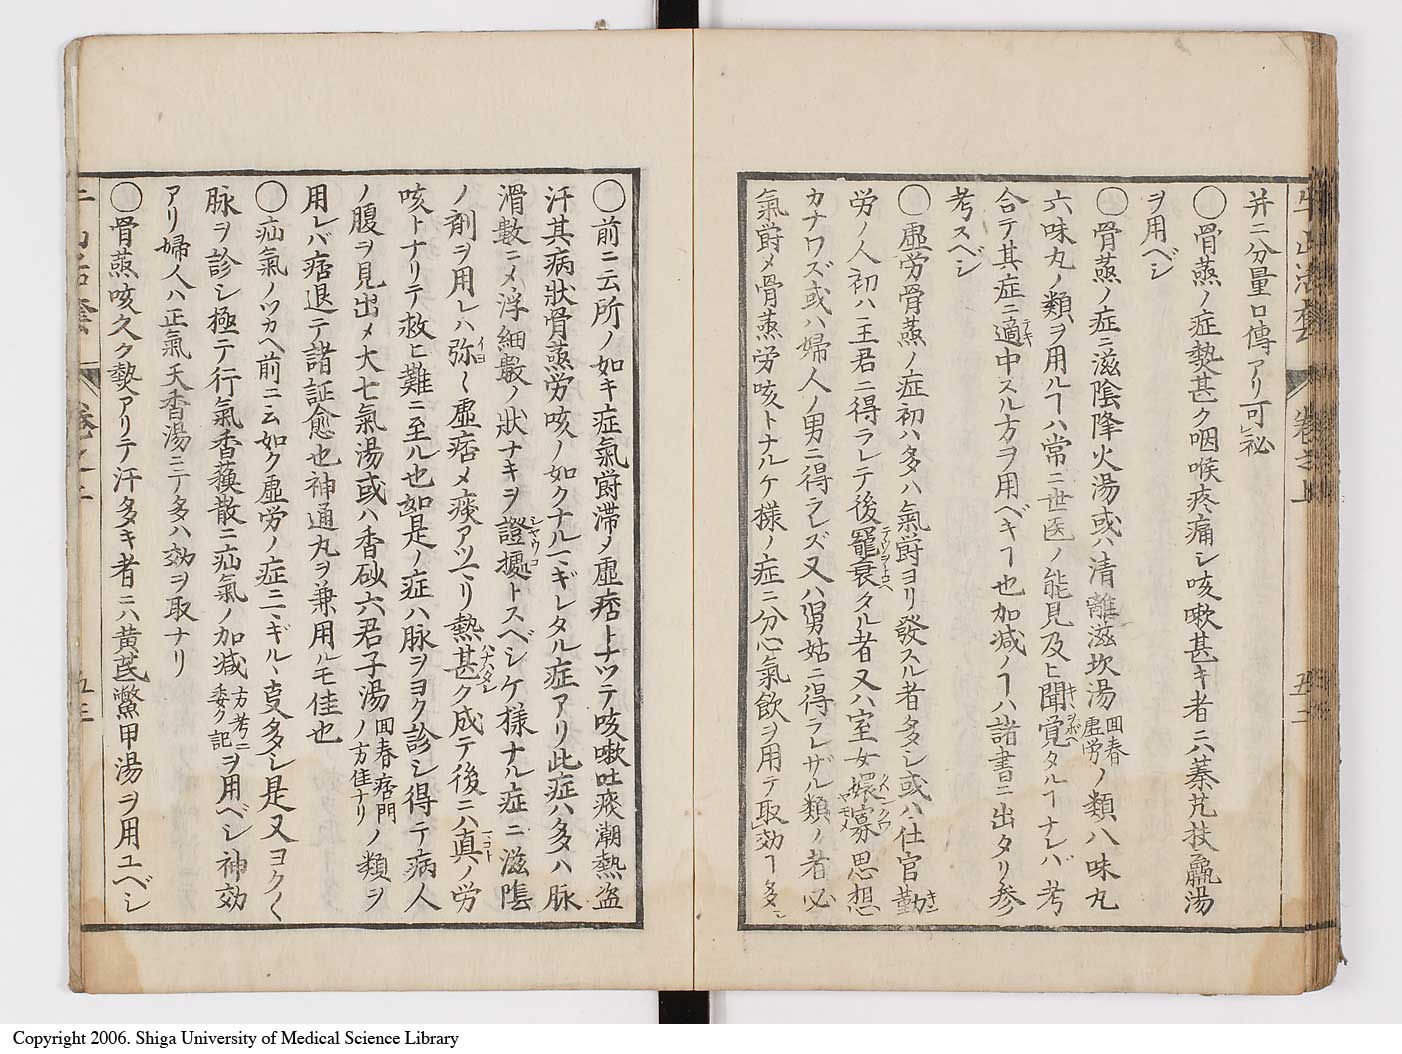 牛山活套 卷之上 五二
并ニ分量口傳アリ可祕
〇骨蒸ノ症勢甚ク咽喉疼痛シ咳嗽甚キ者ニハ蓁艽扶羸湯
ヲ用ベシ
〇骨蒸ノ症ニ滋陰降火湯或ハ清離滋坎湯回春虚労ノ類八味丸
六味丸ノ類ヲ用ルヿハ常ニ世医ノ能見及ヒ聞覚タルヿナレバ考
合テ其症ニ適中スル方ヲ用ベキヿ也加減ノヿハ諸書ニ出タリ参
考スベシ
〇虚労骨蒸ノ症初ハ多ハ氣欝ヨリ發スル者多シ或ハ仕官勤
労ノ人初ハ主君ニ得ラレテ後寵衰タル者又ハ室女嬛寡思想
カナワズ或ハ婦人ノ男ニ得ラレズ又ハ舅姑ニ得ラレザル類ノ者必
氣欝メ骨蒸労咳トナルケ様ノ症ニ分心氣飲ヲ用テ取効ヿ多シ
〇前ニ云所ノ如キ症氣欝滞ノ虚痞トナツテ咳嗽吐痰潮熱盗
汗其病狀骨蒸労咳ノ如クナル一ミギレタル症アリ此症ハ多ハ脉
滑數ニメ浮細數ノ狀ナキヲ證據トスベシケ様ナル症ニ滋陰
ノ剤ヲ用レハ弥〱虚痞メ痰アツマリ熱甚ク成テ後ニハ真ノ労
咳トナリテ救ヒ難ニ至ル也如是ノ症ハ脉ヲヨク診シ得テ病人
ノ腹ヲ見出メ大七氣湯或ハ香砂六君子湯回春痞門ノ方佳ナリノ類ヲ
用レバ痞退テ諸証愈也神通丸ヲ兼用ルモ佳也
〇疝氣ノツカヘ前ニ云如ク虚労ノ症ニミギルヽ叓多シ是又ヨク〱
脉ヲ診シ極テ行氣香蘓散ニ疝氣ノ加減方考ニ委ク記ヲ用ベシ神効
アリ婦人ハ正氣天香湯ニテ多ハ効ヲ取ナリ
〇骨蒸咳久ク勢アリテ汗多キ者ニハ黄芪鱉甲湯ヲ用ユベシ
牛山活套 卷之上 五三